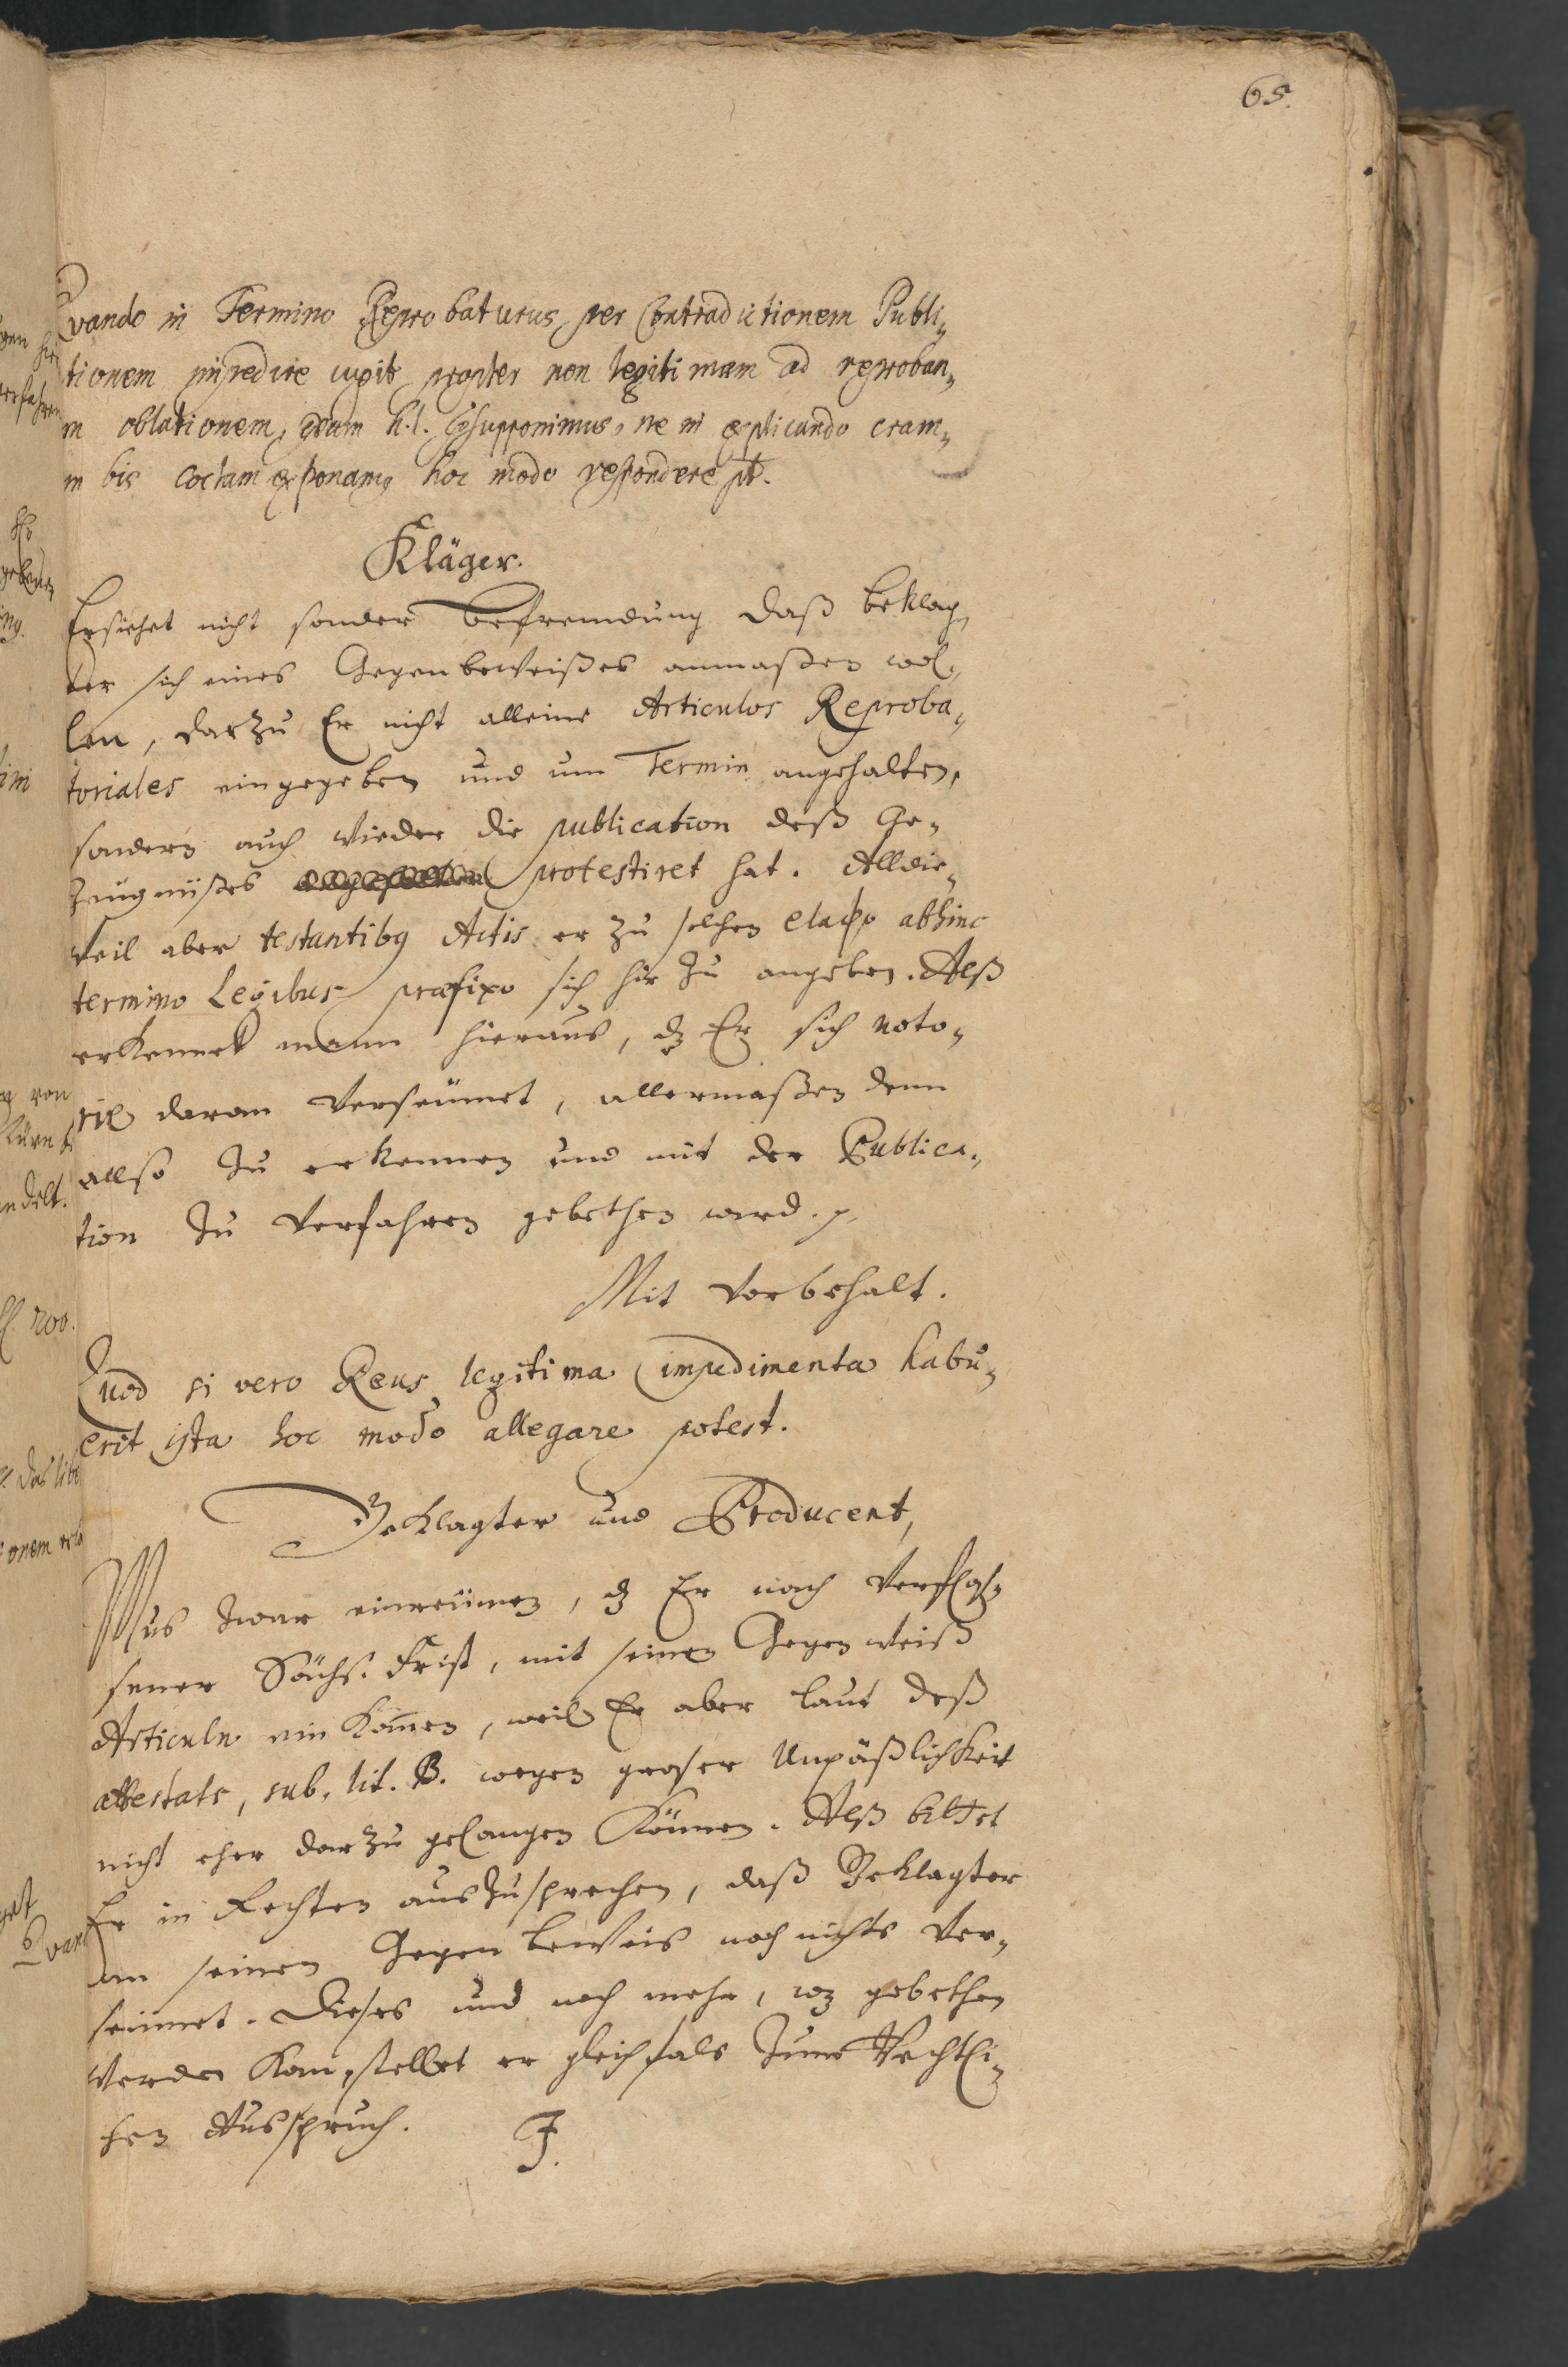 65.
Qvando in Termino Reprobaturus per Contradictionem Publi„
tionem impedire cupit propter non legitimam ad reproban„
m oblationem, qvam h. l. psupponimus, ne in explicando cram„
m bis coctam exponamq hoc modo respondere pt.
Kläger.
Ersiehet nicht sonder Befremdung daß Beklag„
ter sich eines Gegenbeweißes anmaßen wol„
len, darzu Er nicht alleine Articulos Reproba„
toriales eingegeben und um Termin angehalten,
sondern auch wieder die publication deß Ge„
zeugnüßes protestiret hat. Alldie„
weil aber testantibq Actis er zu solchen elapso abhinc
termino Legibus præfixo sich hir zu angeben. Alß
erkennet mann hieraus, dz Er sich noto„
riè daran verseümet, allermaßen denn
allso zu erkennen und mit der Publica„
tion zu verfahren gebethen wird. p.
Mit Vorbehalt.
Quod si vero Reus legitima impedimenta habu„
erit ista hoc modo allegare potest.
Beklagter und Producent,
Mus zwar einreümen, dz Er nach verfloß„
sener Sächs. Frist, mit seinen Gegen weiß
Articuln ein kom̄en, weil Er aber laut deß
attestats, sub. lit. B. wegen groser Unpäßlichkeit
nicht eher darzu gelangen können. Alß bittet
Er in Rechten auszusprechen, daß Beklagter
am seinen Gegen beweis noch nichts ver„
seümet. Dieses und noch mehr, wz gebethen
werden kan, stellet er gleichfals zum Rechtli„
chen Ausspruch. J.